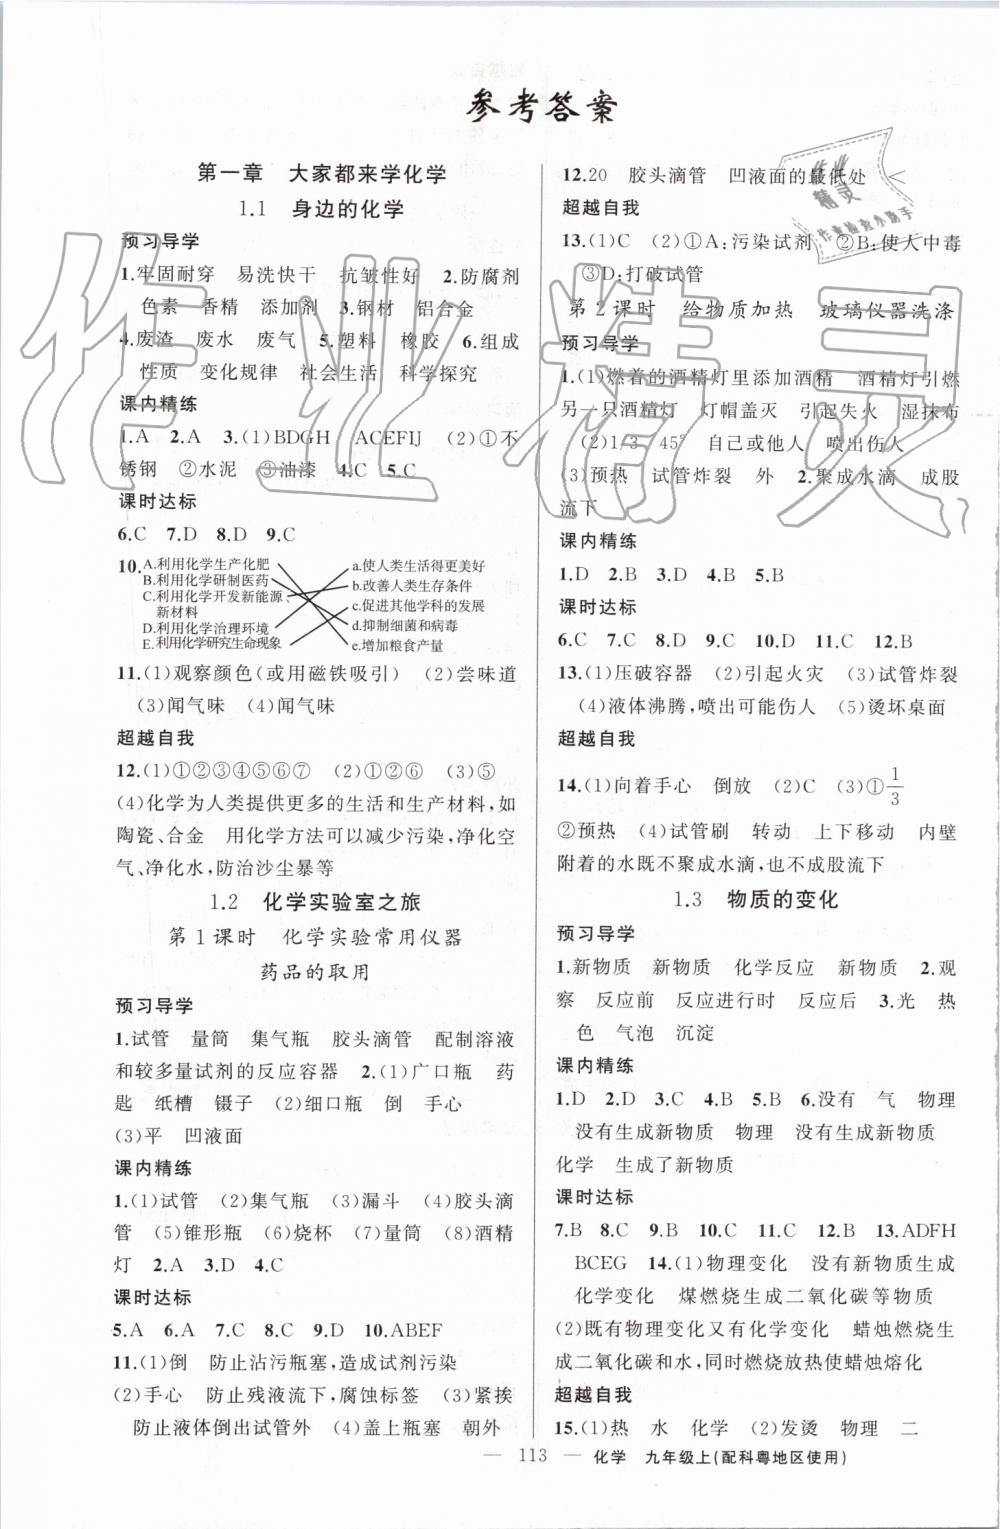 参考答案
第一章 大家都来学化学
1.1 身边的化学
预习导学
1.牢固耐穿 易洗快干 抗皱性好 2.防腐剂
色素 香精 添加剂 3.钢材 铝合金
4.废渣 废水 废气 5.塑料 橡胶 6.组成
性质 变化规律 社会生活 科学探究
课内精练
1.A 2.A 3.(1)BDGH ACEFIJ (2)①不
锈钢 ②水泥 ③油漆 4.C 5.C
课时达标
6.C 7.D 8.D 9.C
10.
A.利用化学生产化肥
B.利用化学研制医药
C.利用化学开发新能源、
新材料
D.利用化学治理环境
E.利用化学研究生命现象
a.使人类生活得更美好
b.改善人类生存条件
c.促进其他学科的发展
d.抑制细菌和病毒
e.增加粮食产量
11.(1)观察颜色(或用磁铁吸引) (2)尝味道
(3)闻气味 (4)闻气味
超越自我
12.(1)①②③④⑤⑥⑦ (2)①②⑥ (3)⑤
(4)化学为人类提供更多的生活和生产材料,如
陶瓷、合金 用化学方法可以减少污染,净化空
气、净化水,防治沙尘暴等
1.2 化学实验室之旅
第1课时 化学实验常用仪器
药品的取用
预习导学
1.试管 量筒 集气瓶 胶头滴管 配制溶液
和较多量试剂的反应容器 2.(1)广口瓶 药
匙 纸槽 镊子 (2)细口瓶 倒 手心
(3)平 凹液面
课内精练
1.(1)试管 (2)集气瓶 (3)漏斗 (4)胶头滴
管 (5)锥形瓶 (6)烧杯 (7)量筒 (8)酒精
灯 2.A 3.D 4.C
课时达标
5.A 6.A 7.C 8.D 9.D 10.ABEF
11.(1)倒 防止沾污瓶塞,造成试剂污染
(2)手心 防止残液流下,腐蚀标签 (3)紧挨
防止液体倒出试管外 (4)盖上瓶塞 朝外
12.20 胶头滴管 凹液面的最低处 <
超越自我
13.(1)C (2)①A;污染试剂 ②B;使人中毒
③D;打破试管
第2课时 给物质加热 玻璃仪器洗涤
预习导学
1.(1)燃着的酒精灯里添加酒精 酒精灯引燃
另一只酒精灯 灯帽盖灭 引起失火 湿抹布
(2)1/3 45° 自己或他人 喷出伤人
(3)预热 试管炸裂 外 2.聚成水滴 成股
流下
课内精练
1.D 2.B 3.D 4.B 5.B
课时达标
6.C 7.C 8.D 9.D 10.D 11.C 12.B
13.(1)压破容器 (2)引起火灾 (3)试管炸裂
(4)液体沸腾,喷出可能伤人 (5)烫坏桌面
超越自我
14.(1)向着手心 倒放 (2)C (3)①1/3
②预热 (4)试管刷 转动 上下移动 内壁
附着的水既不聚成水滴,也不成股流下
1.3 物质的变化
预习导学
1.新物质 新物质 化学反应 新物质 2.观
察 反应前 反应进行时 反应后 3.光 热
色 气泡 沉淀
课内精练
1.D 2.D 3.C 4.B 5.B 6.没有 气 物理
没有生成新物质 物理 没有生成新物质
化学 生成了新物质
课时达标
7.B 8.C 9.B 10.C 11.C 12.B 13.ADFH
BCEG 14.(1)物理变化 没有新物质生成
化学变化 煤燃烧生成二氧化碳等物质
(2)既有物理变化又有化学变化 蜡烛燃烧生
成二氧化碳和水,同时燃烧放热使蜡烛熔化
超越自我
15.(1)热 水 化学 (2)发烫 物理 二
— 113 — 化学 九年级上(配科粤地区使用)
作业精灵
作业
精灵
作业检查小助手